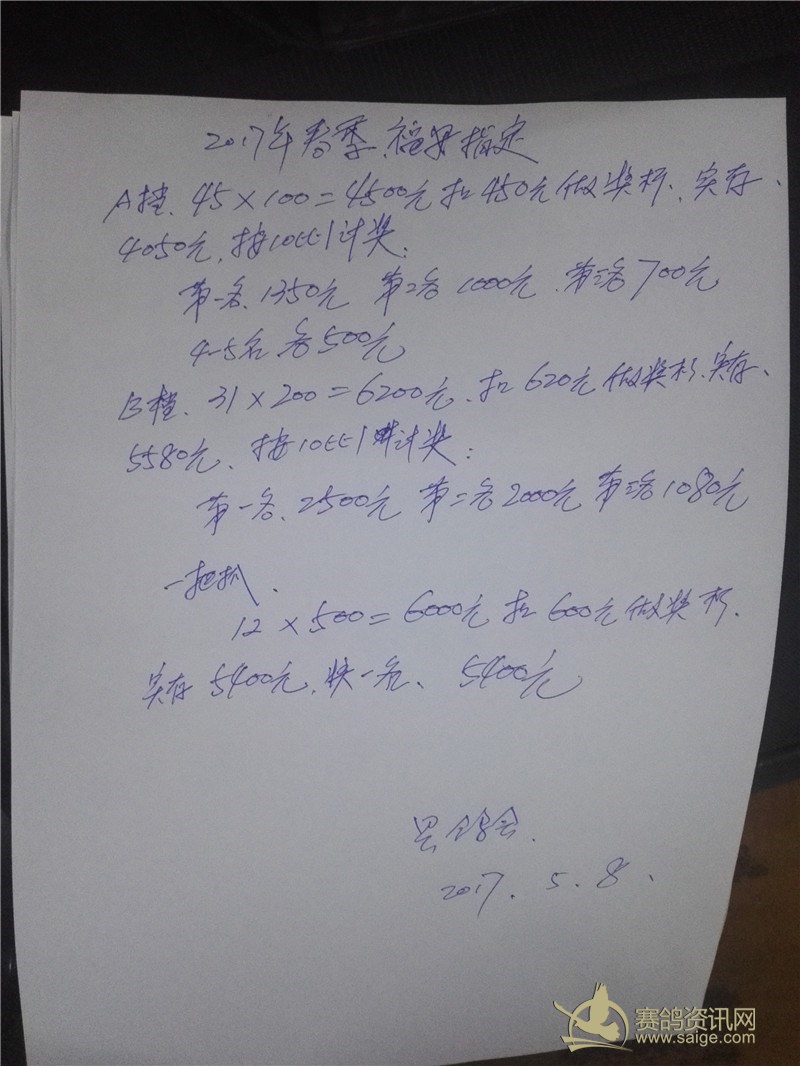 2017年春季福安指定
A档、45×100=4500元扣450元做奖杯、实存、
4050元、按10比1计奖、
第一名、1350元 第二名 1000元、第三名700元
4-5名 各500元
B档、31×200=6200元、扣620元做奖杯、实存、
5580元、按10比1计奖:
第一名、2500元 第二名2000元 第三名1080元
一把抓、
12×500=6000元 扣600元做奖杯、
实存5400元、奖一名、5400元
鸽会、
2017.5.8、
赛鸽资讯网
www.saige.com